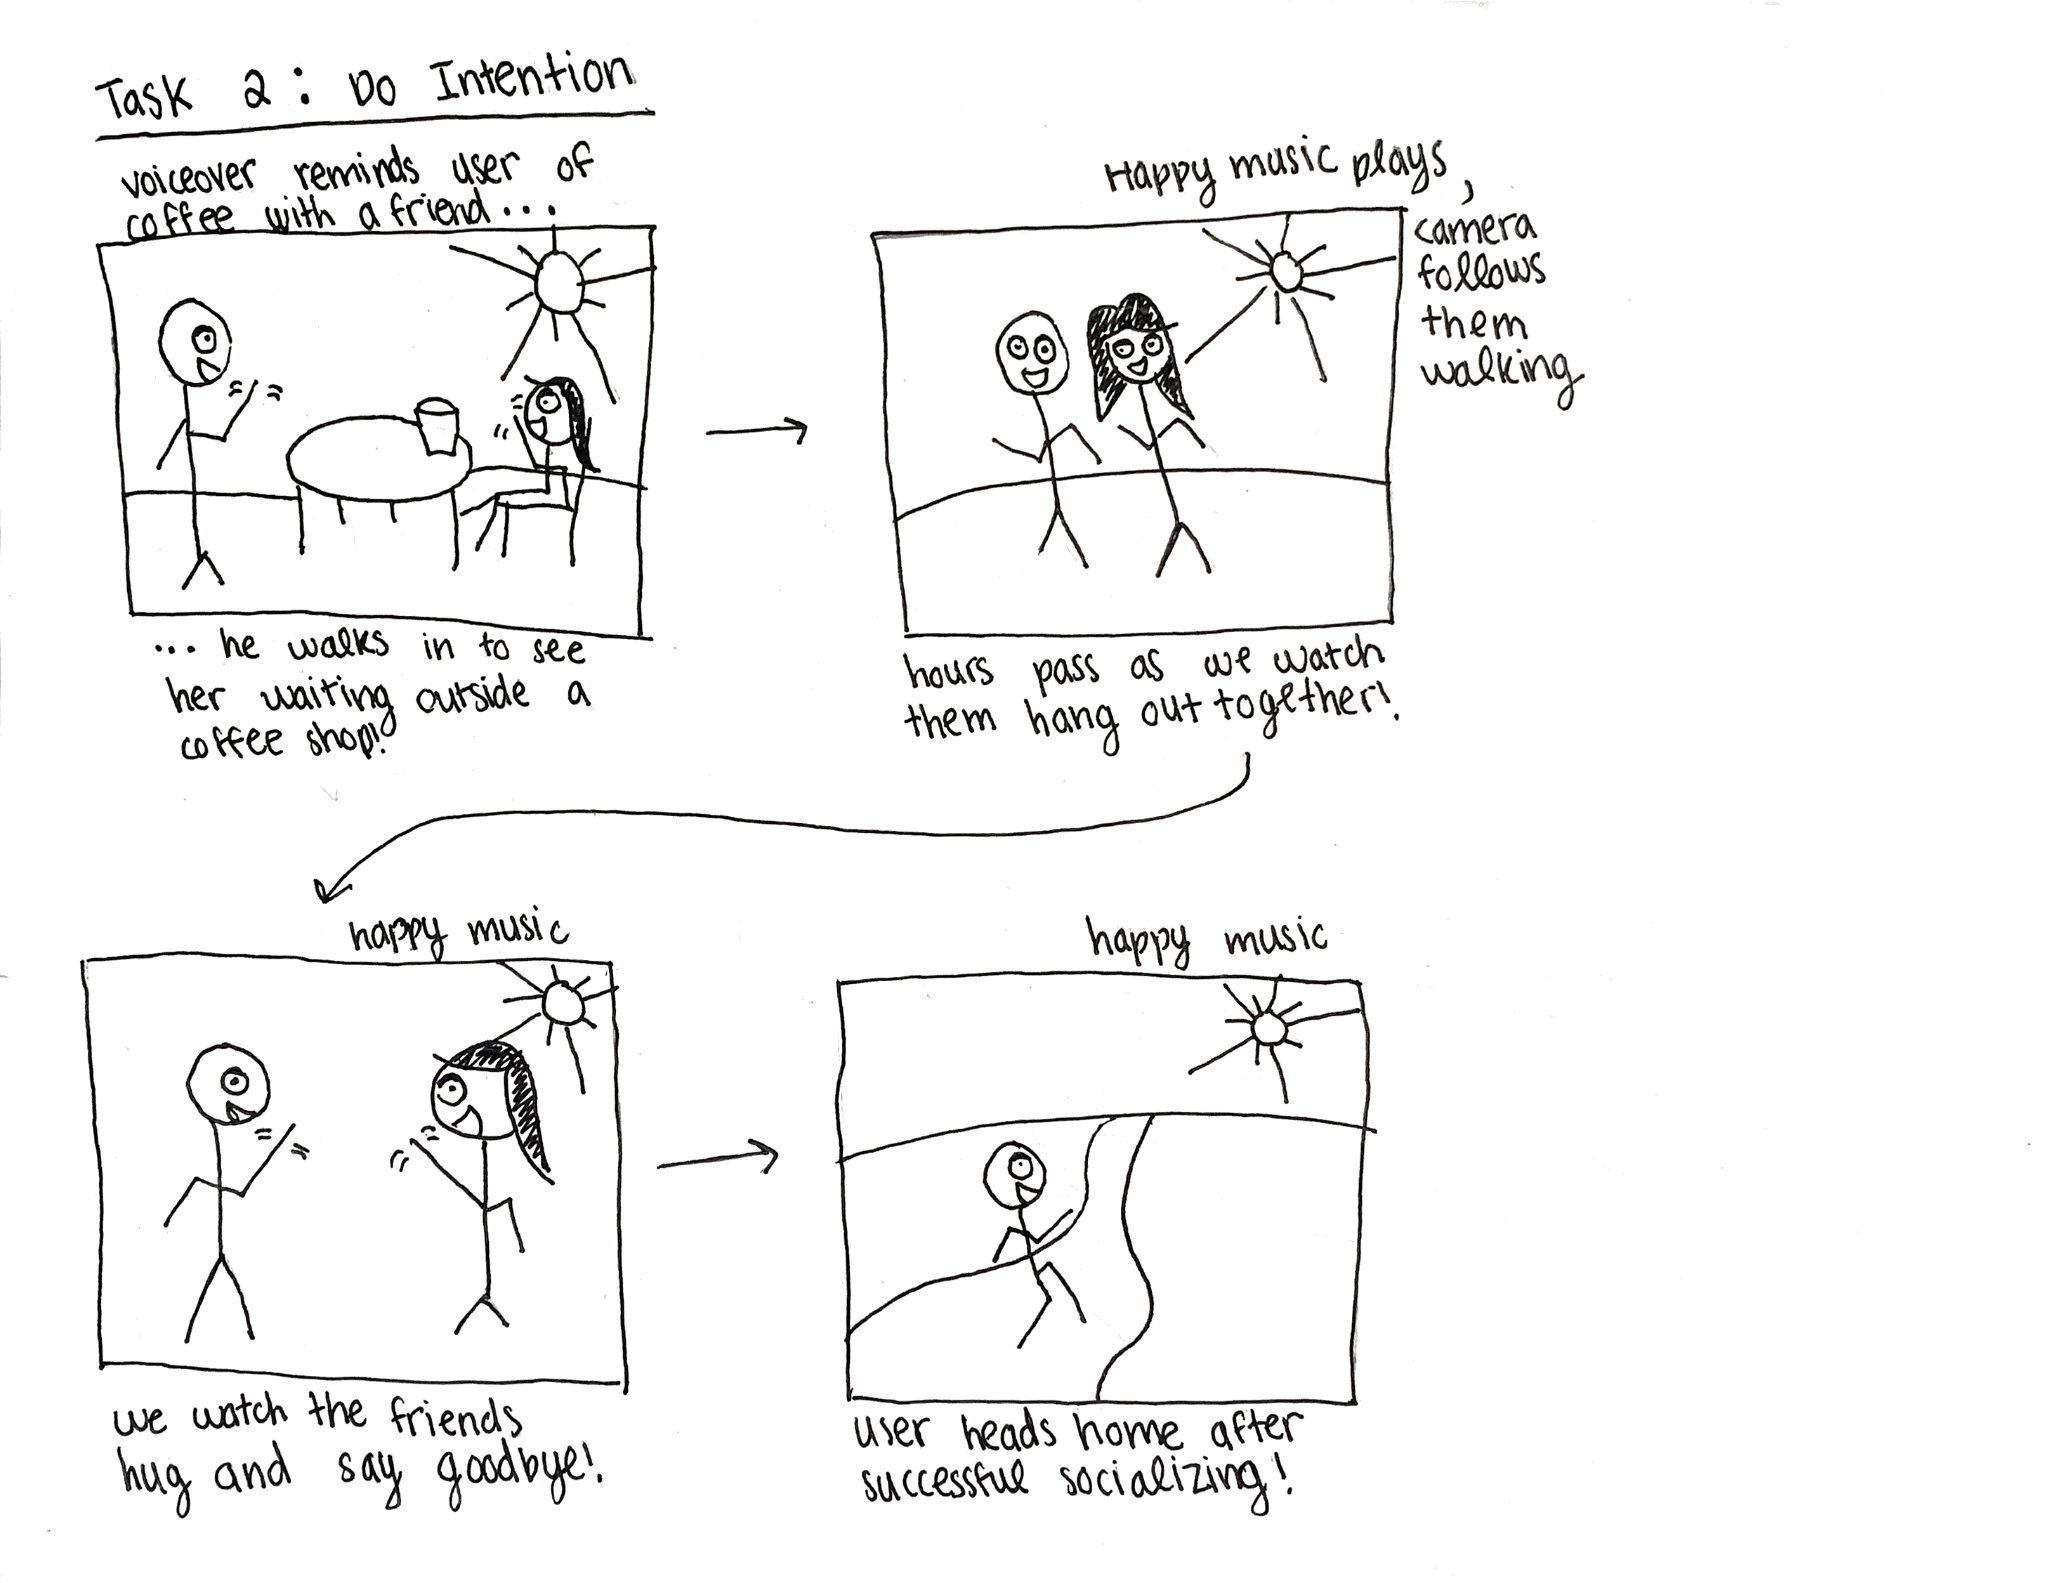 Task 2: Do Intention
voiceover reminds user of
coffee with a friend...
... he walks in to see
her waiting outside a
coffee shop!
Happy music plays,
camera
follows
them
walking
hours pass as we watch
them hang out together!
happy music
we watch the friends
hug and say goodbye!
happy music
user heads home after
successful socializing!